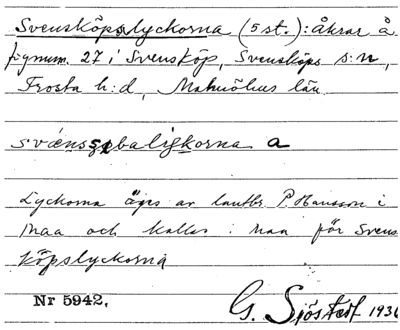 Svensköpslyckorna (5 st.): åkrar å
fignum. 27 i Svensköp, Svensköps s:n,
Frosta h:d, Malmöhus län.
Lyckorna äges av lantbr. P. Hansson i
Maa och kallas i Maa för Svens
köpslyckorna
Nr 5942.
G. Sjöstedt 1936